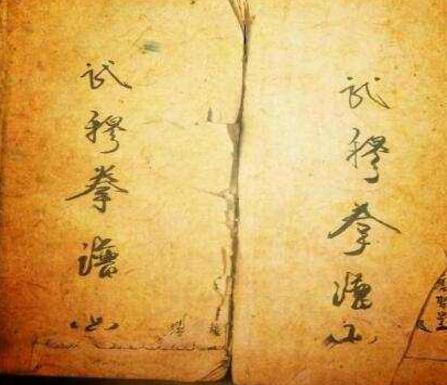 武穆拳譜
武穆拳譜